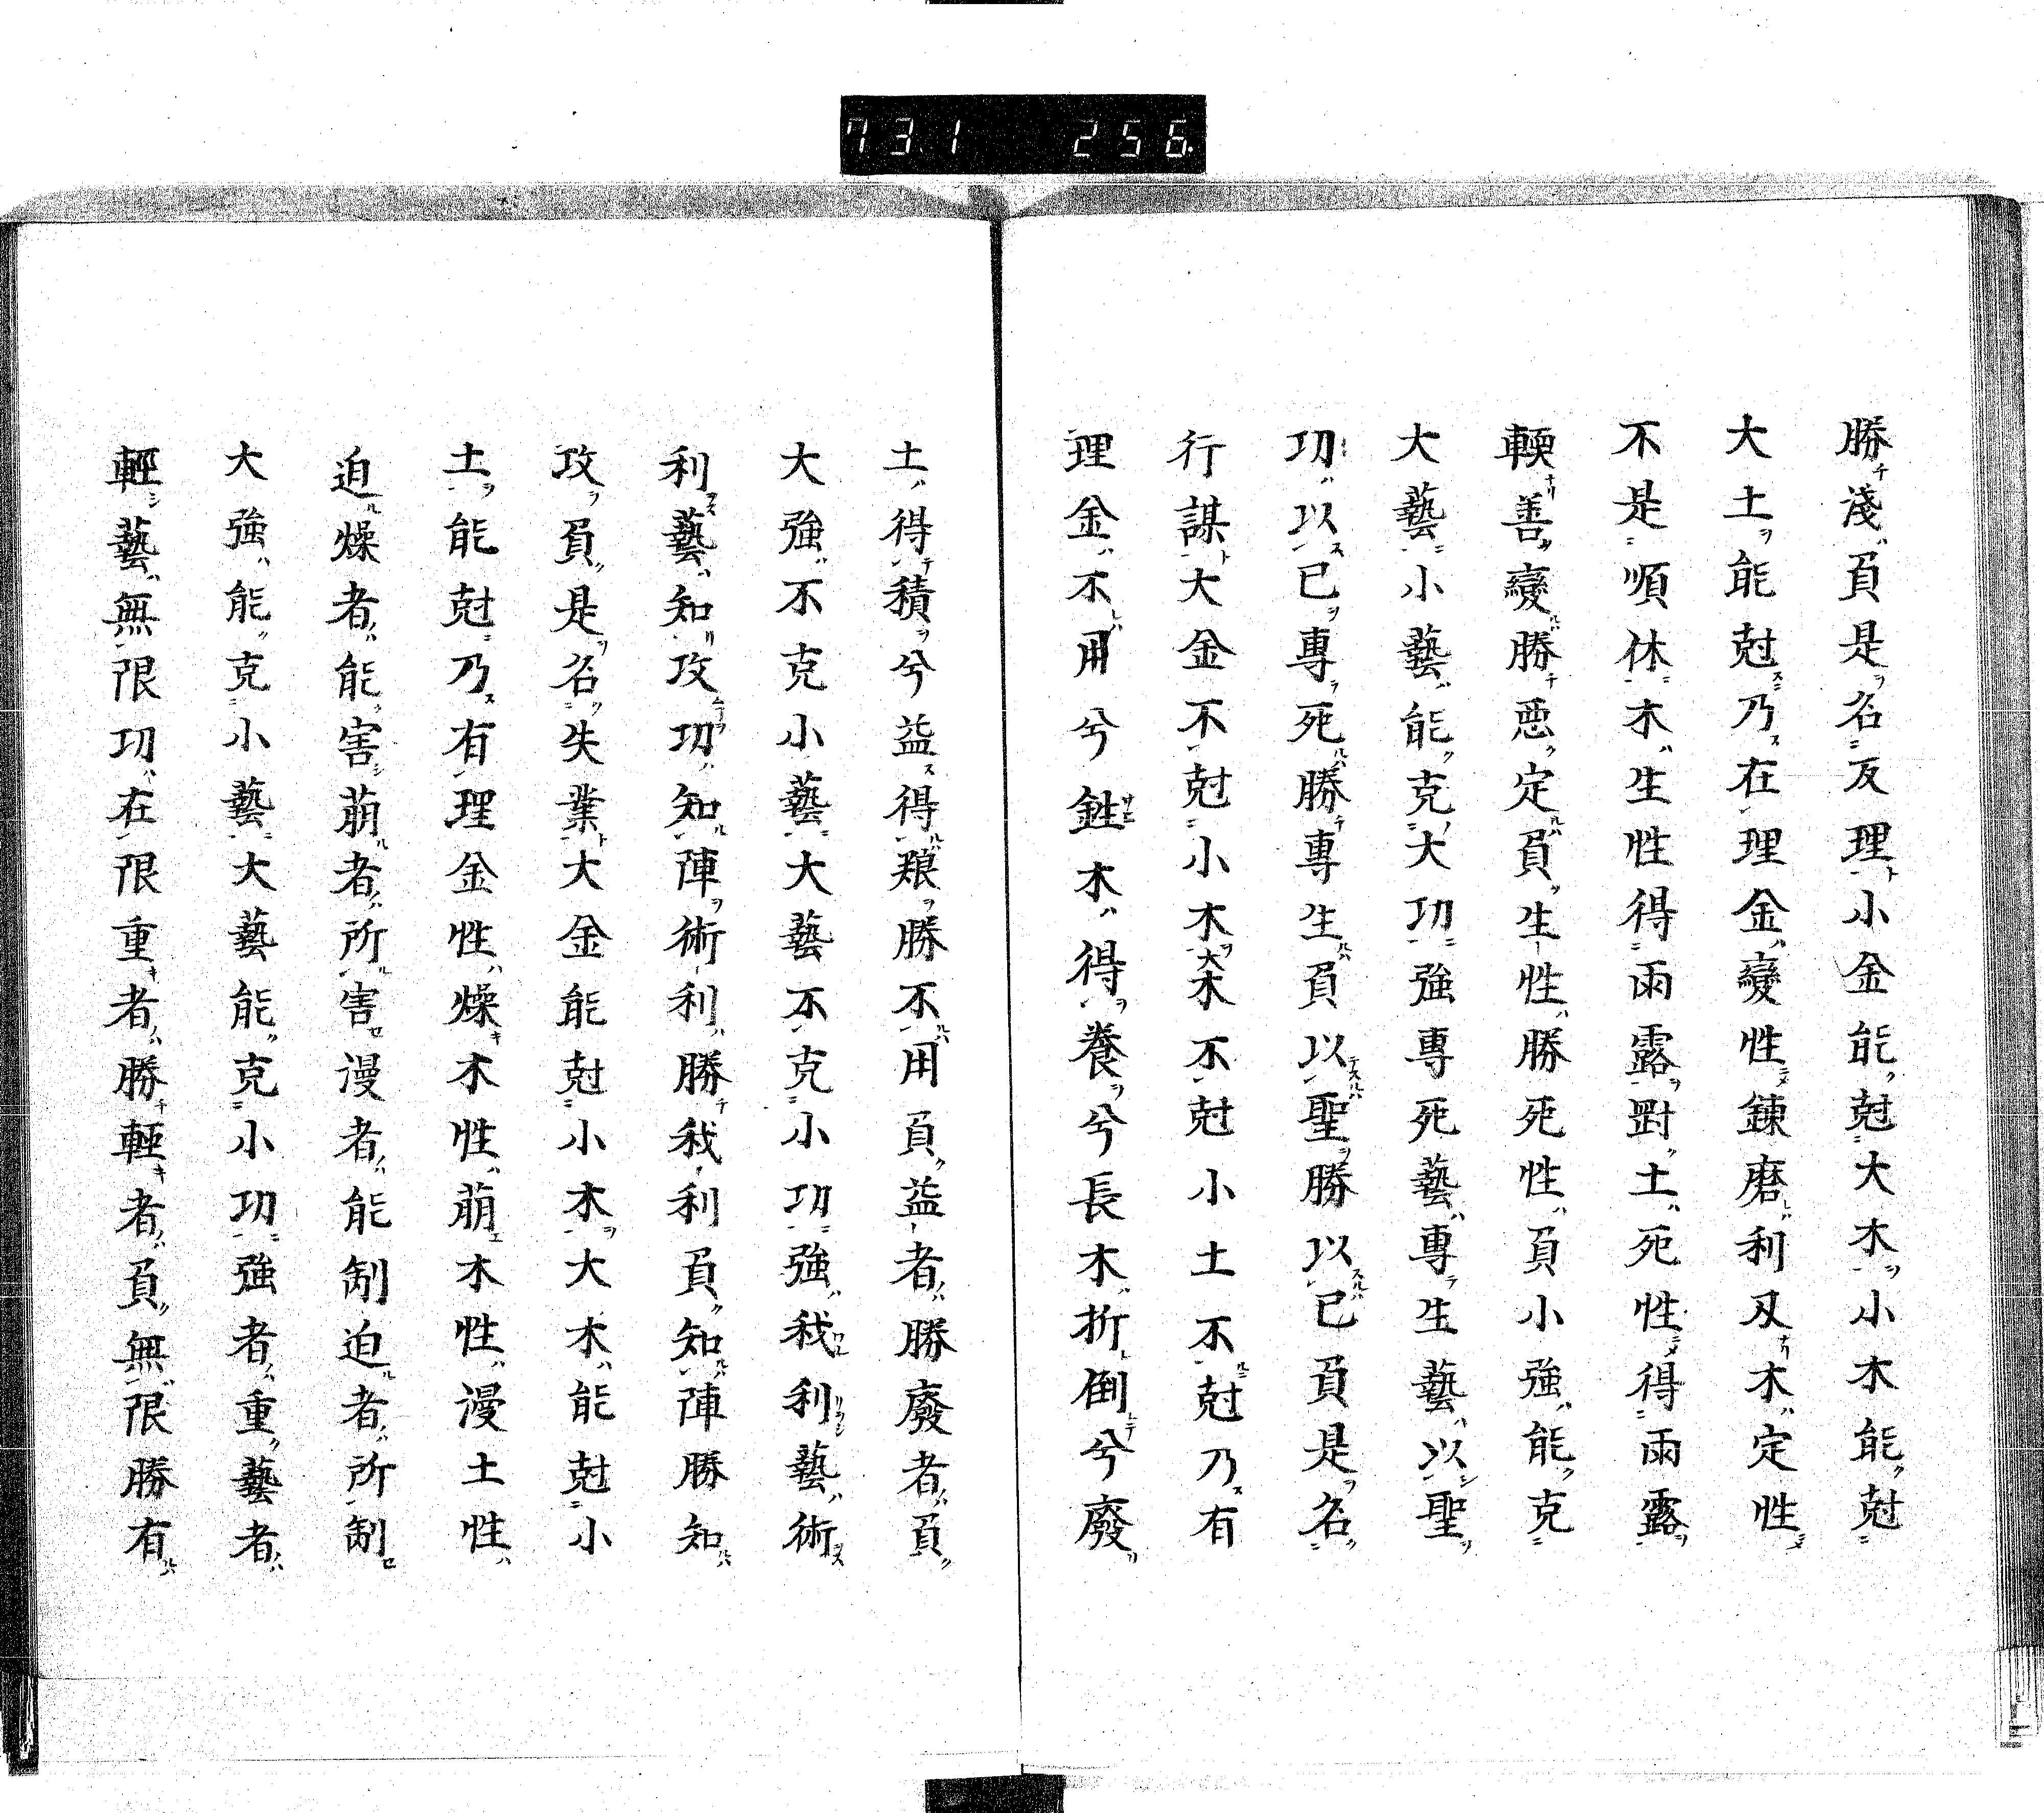 731 256
勝淺負是名反理小金能尅大木小木能尅
大土能尅乃在理金變性鍊磨利刄木定性
不是順休木生性得雨露對土死性得雨露
輭善變勝惡定負生性勝死性負小強能克
大藝小藝能克大功強專死藝專生藝以聖
功以已專死勝專生負以聖勝以已負是名
行謀大金不尅小木大木不尅小土不尅乃有
理金不用兮銼木得養兮長木折倒兮廢
土得積兮益得粮勝不用負益者勝廢者負
大強不克小藝大藝不克小功強我利藝術
利藝知攻功知陣術利勝我利負知陣勝知
攻負是名失業大金能尅小木大木能尅小
土能尅乃有理金性燥木性萠木性漫土性
迫燥者能害萠者所害漫者能制迫者所制
大強能克小藝大藝能克小功強者重藝者
輕藝無限功在限重者勝輕者負無限勝有